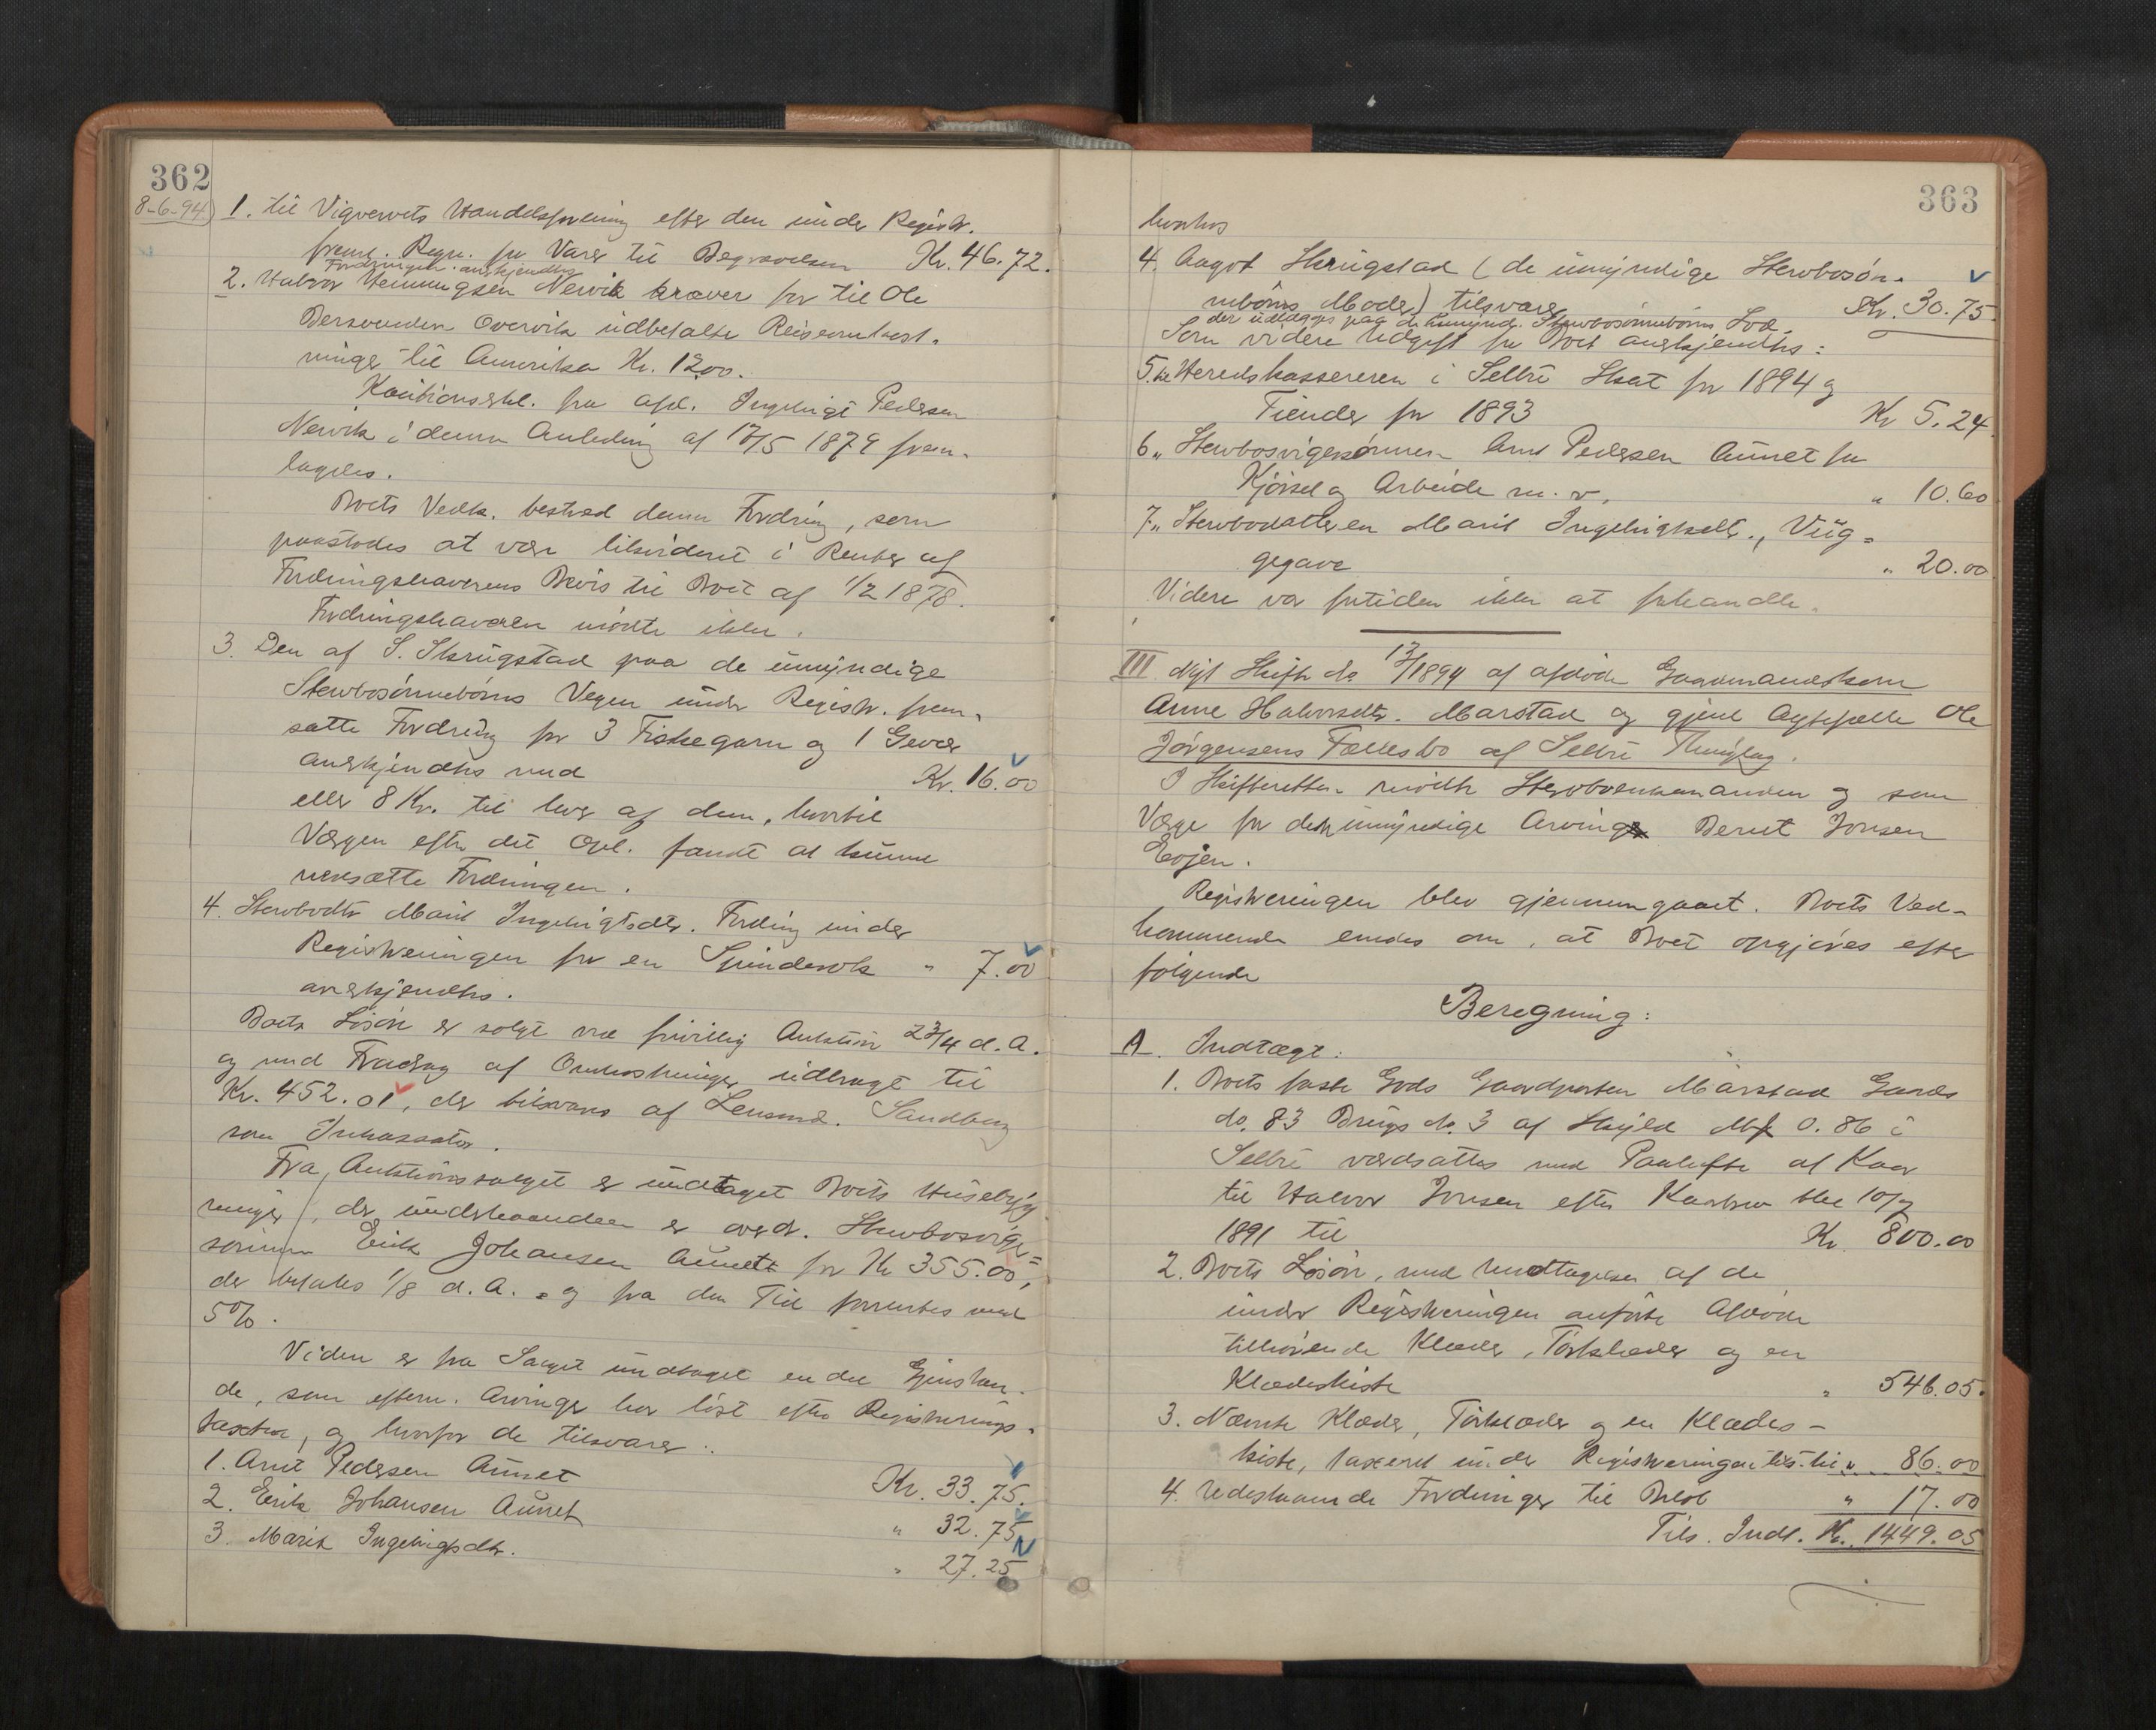 362
8-6-94
1. til Vigvervets Handelsforening efter den under Registr.
fremk. Regn. for Varer til Begravelsen Kr. 46.72.
Fordringen anerkjendtes
2. Halvor Henningsen Nervik kræver for til Ole
Berntsen Overvik udbetalte Reiseomkost-
ninger til Amerika Kr. 1200.
Kautionserkl. fra afd. Ingebrigt Pedersen
Nervik i denne Anledning af 17/5 1879 frem-
lagdes.
Boets Vedk. bestred denne Fordring, som
paastodes at være likvideret i Renter af
Fordringshaverens Bevis til Boet af 1/2 1878.
Fordringshaveren mödte ikke.
3. Den af S. Skrugstad paa de umyndige
Stervbosönnebörns Vegne under Registr. frem-
satte Fordring for 3 Fiskegarn og 1 Gevær
anerkjendtes med Kr. 16.00
eller 8 Kr. til hver af dem, hvortil
Værgen efter det Opl. fandt at kunne
nedsætte Fordringen.
4. Stervbodtr Marit Ingebrigtsdtr. Fordring under
Registreringen for en Spinderok " 7.00
anerkjendtes.
Boets Lösöre er solgt ved frivillig Auktion 23/4 d. A.
og med Fradrag af Omkostninger udbragt til
Kr. 452.01, der tilsvares af Lensmd. Sandberg
som Inkassator.
Fra Auktionssalget er undtaget Boets Husebyg-
ninger, der underhaanden er overdr. Stervbosviger-
sönnen Erik Johansen Aunet for Kr 355.00,
der betales 1/8 d. A. og fra den Tid forrentes med
5%.
Viden er fra Salget undtaget endel Gjenstan-
de, som efternv. Arvinger har löst efter Registrerings-
taxten, og hvorfor de tilsvarer:
1. Arnt Pedersen Aunet Kr. 33.75.
2. Erik Johansen Aunet " 32.75
3. Marit Ingebrigtsdtr. " 27.25
363
hvorhos
4. Aagot Skrugstad (de umyndige Stervbosön-
nebörns Moder) tilsvarer Kr. 30.75.
der udlægges paa de umynd. Stervbosönnebörns Lod.
Som videre Udgift for Boet anerkjendtes:
5. til Heredskassereren i Selbu Skat for 1894 og
Tiender for 1893 Kr 5.24.
6 " Stervbosvigersönnen Arnt Pedersen Aunet for
Kjörsel og Arbeide m. v. " 10.60
7 " Stervbodatteren Marit Ingebrigtsdtr., Vug-
gegave " 20.00
Videre var fortiden ikke at forhandle.
III. Nyt Skifte No 13/1894 af afdöde Gaardmandskone
Anne Halvorsdtr. Marstad og gjenl Ægtefælle Ole
Jörgensens Fællesbo af Selbu Thinglag.
I Skifteretten mödte Stervboenkemanden og som
Værge for den umyndige Arving Bernt Jonsen
Evjen.
Registreringen blev gjennemgaaet. Boets Ved-
kommende enedes om, at Boet opgjöres efter
fölgende
Beregning:
A. Indtægt:
1. Boets faste Gods Gaardparten Marstad Gards
No. 83 Brugs No. 3 af Skyld Mk 0.86 i
Selbu værdsattes med Paahefte af Kaar
til Halvor Jonsen efter Kaarbrev thl 10/7
1891 til Kr. 800.00
2. Boets Lösöre, med Undtagelse af de
under Registreringen anförte Afdöde
tilhörende Klæder, Törklæder og en
Klædeskiste " 546.05.
3. Nævnte Klæder, Törklæder og en Klædes-
kiste, taxeret under Registreringen tils. til " 86.00
4. Udestaaende Fordringer til Belöb " 17.00
Tils. Indt. Kr. 1449.05